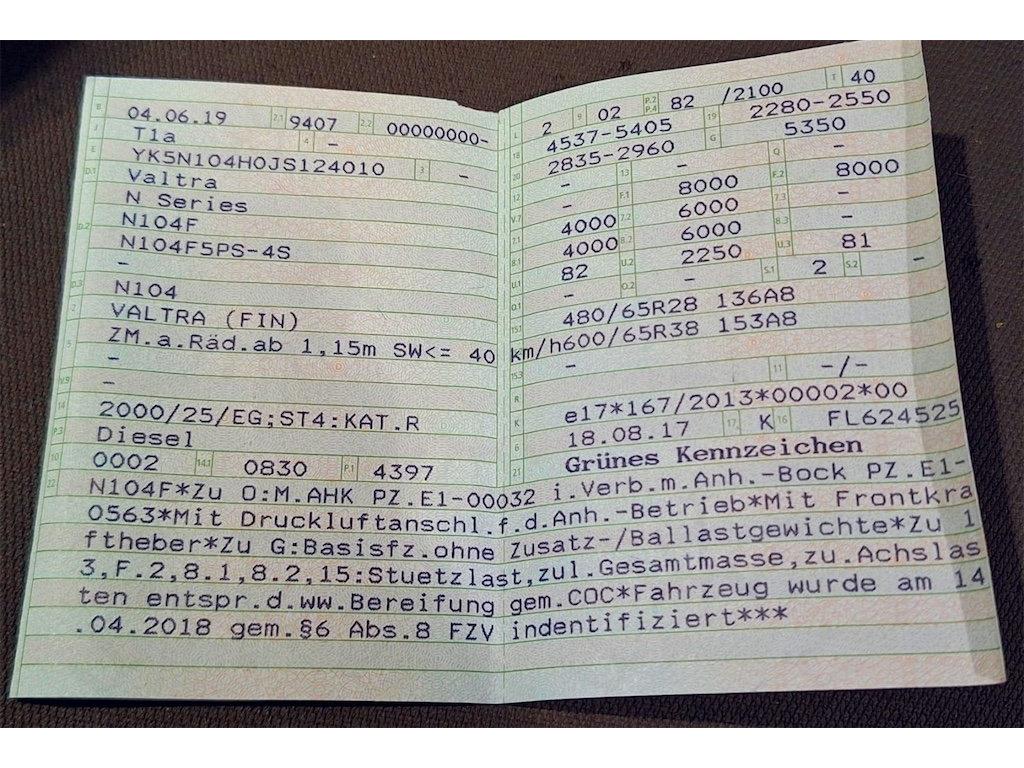 B 04.06.19 2.1 9407 2.2 00000000-
J T1a 4 -
E YK5N104H0JS124010 3 -
D.1 Valtra
N Series
D.2 N104F
N104F5PS-4S
-
D.3 N104
2 VALTRA (FIN)
5 ZM.a.Räd.ab 1,15m SW<= 40 km/h
-
V.9 -
14 2000/25/EG;ST4:KAT.R
P.3 Diesel
10 0002 14.1 0830 P.1 4397
L 2 9 02 P.2 P.4 82 /2100 T 40
18 4537-5405 19 2280-2550
20 2835-2960 G 5350
12 - 13 - Q -
V.7 - F.1 8000 F.2 8000
7.1 4000 7.2 6000 7.3 -
8.1 4000 8.2 6000 8.3 -
U.1 82 U.2 2250 U.3 81
O.1 - O.2 - S.1 2 S.2 -
15.1 480/65R28 136A8
600/65R38 153A8
15.3 -
R - 11 -/-
K e17*167/2013*00002*00
6 18.08.17 17 K 16 FL624525
21 Grünes Kennzeichen
22 N104F*Zu O:M.AHK PZ.E1-00032 i.Verb.m.Anh.-Bock PZ.E1-
0563*Mit Druckluftanschl.f.d.Anh.-Betrieb*Mit Frontkra
ftheber*Zu G:Basisfz.ohne Zusatz-/Ballastgewichte*Zu 1
3,F.2,8.1,8.2,15:Stuetzlast,zul.Gesamtmasse,zu.Achslas
ten entspr.d.ww.Bereifung gem.COC*Fahrzeug wurde am 14
.04.2018 gem.§6 Abs.8 FZV indentifiziert***